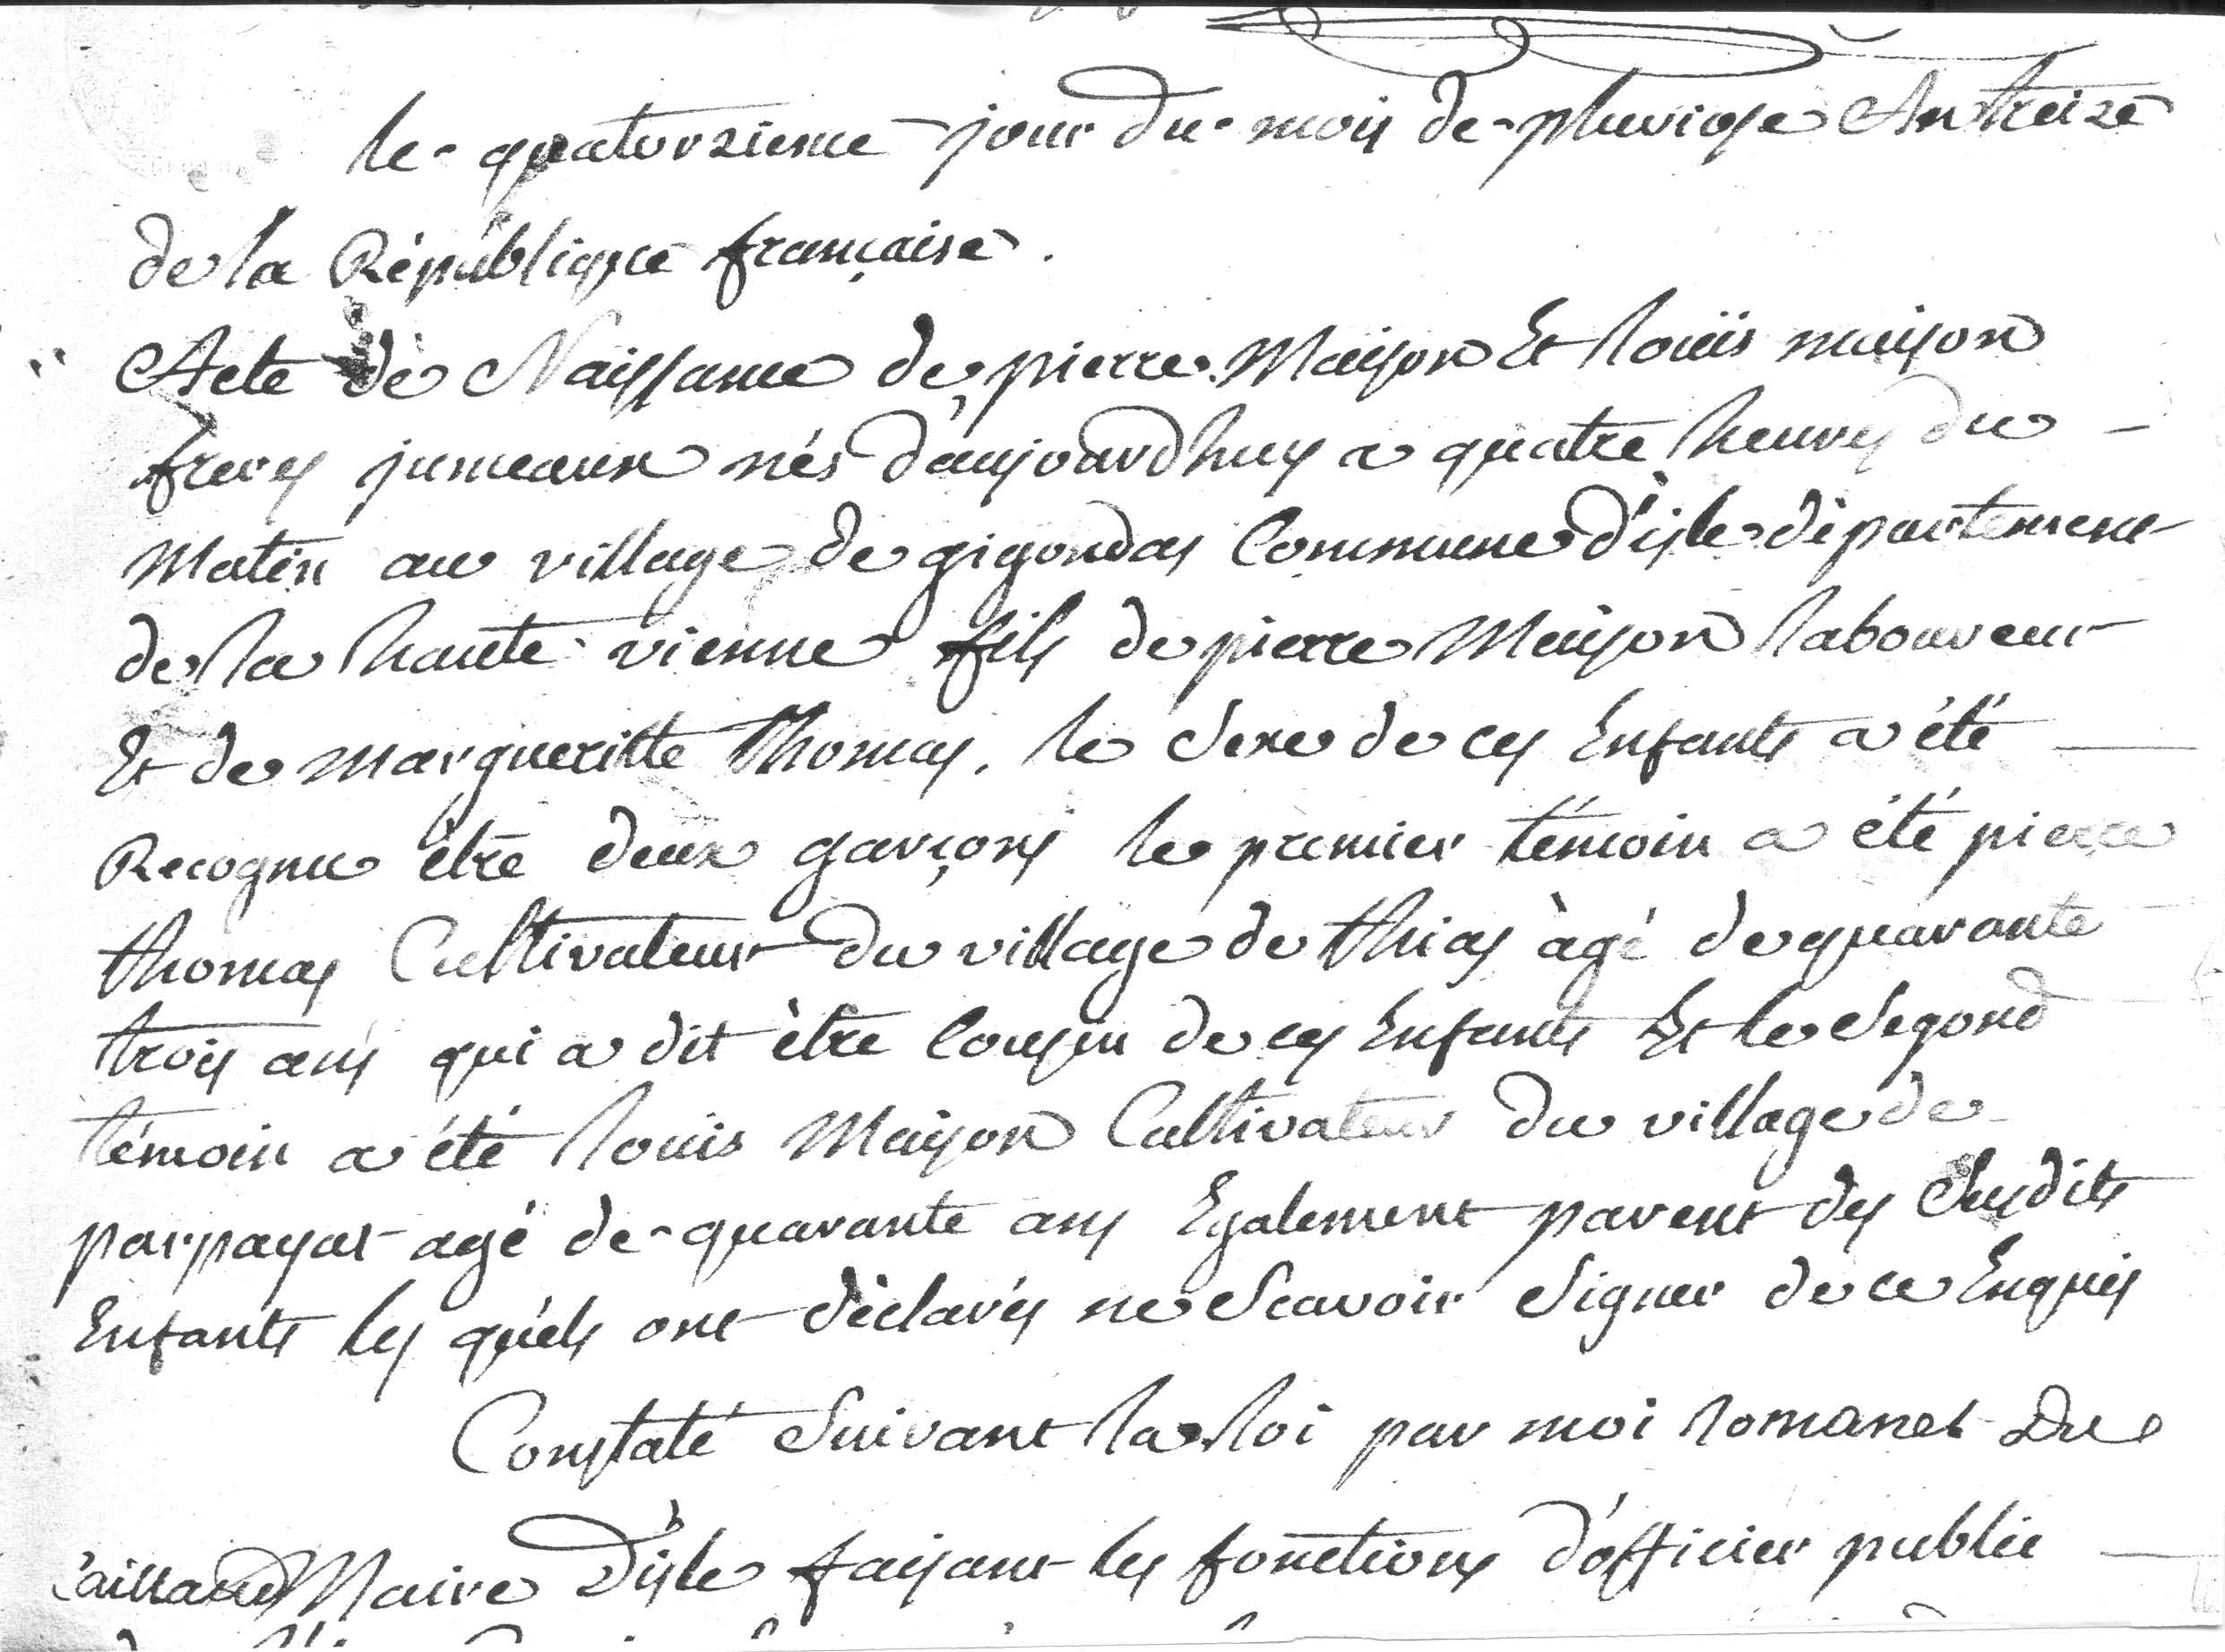 le quatorzieme jour du mois de pluviose An treize
de la République française.
Acte de Naissance de pierre Maison Et louïs maison
freres jumeaux nés d'aujourd'huy a quatre heures du
Matin au village de gigondas Commune d'isle département
de la haute vienne fils de pierre Maison laboureur
Et de Margueritte Thomas, le Sexe de ces Enfants a été
Recognu être deux garçons le premier témoin a été pierre
thomas Cultivateur du village de thias àgé de quarante
trois ans qui a dit être Cousin de ces Enfants Et le Segond
témoin a été louis Maison Cultivateur du village de
parpayat agé de quarante ans Egalement parent des Susdits
Enfants les quéls ont déclarés ne Scavoir Signer de ce Enquis
Constaté Suivant la loi par moi Romanet Du
Caillaud Maire D'isle faisant les fonctions d'officier public